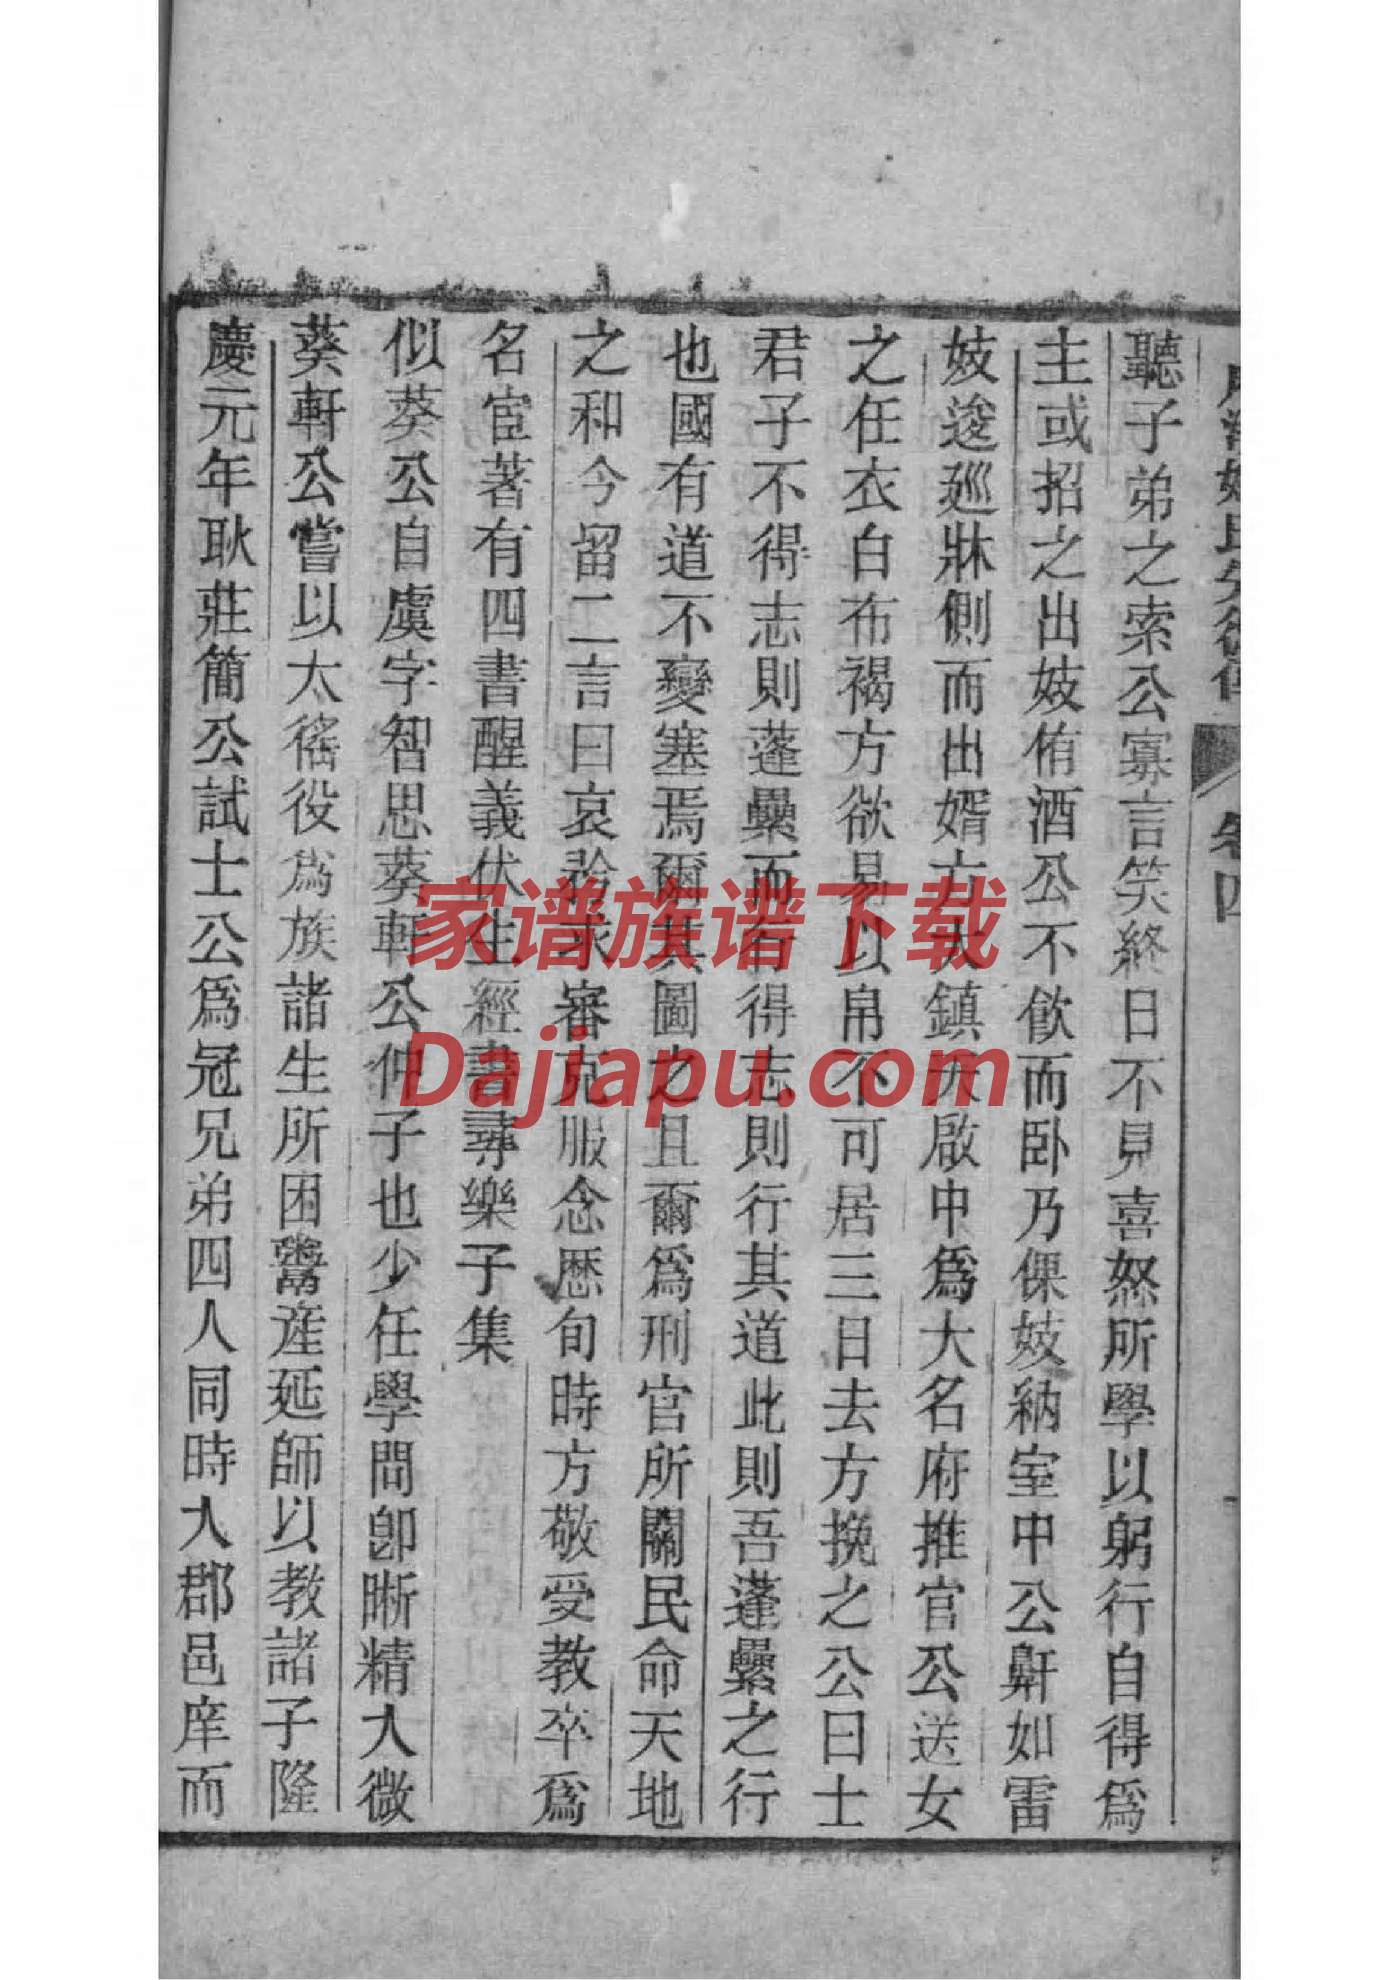 聽子弟之索公寡言笑終日不見喜怒所學以躬行自得爲
主或招之出妓侑酒公不飲而卧乃倮妓納室中公鼾如雷
妓逡廵牀側而出婿方大鎮大啟中爲大名府推官公送女
之任衣白布褐方欲易以帛不可居三日去方挽之公曰士
君子不得志則蓬纍而行得志則行其道此則吾蓬纍之行
也國有道不變塞焉爾其圖之且爾爲刑官所關民命天地
之和今留二言曰哀矜求審克服念歷旬時方敬受教卒爲
名宦著有四書醒義伏生經書尋樂子集
似葵公自虞字智思葵軒公仲子也少任學問卽晣精入微
葵軒公嘗以太徭役爲族諸生所困鬻産延師以教諸子隆
慶元年耿莊簡公試士公爲冠兄弟四人同時入郡邑庠而
卷四
家谱族谱下载
Dajiapu.com